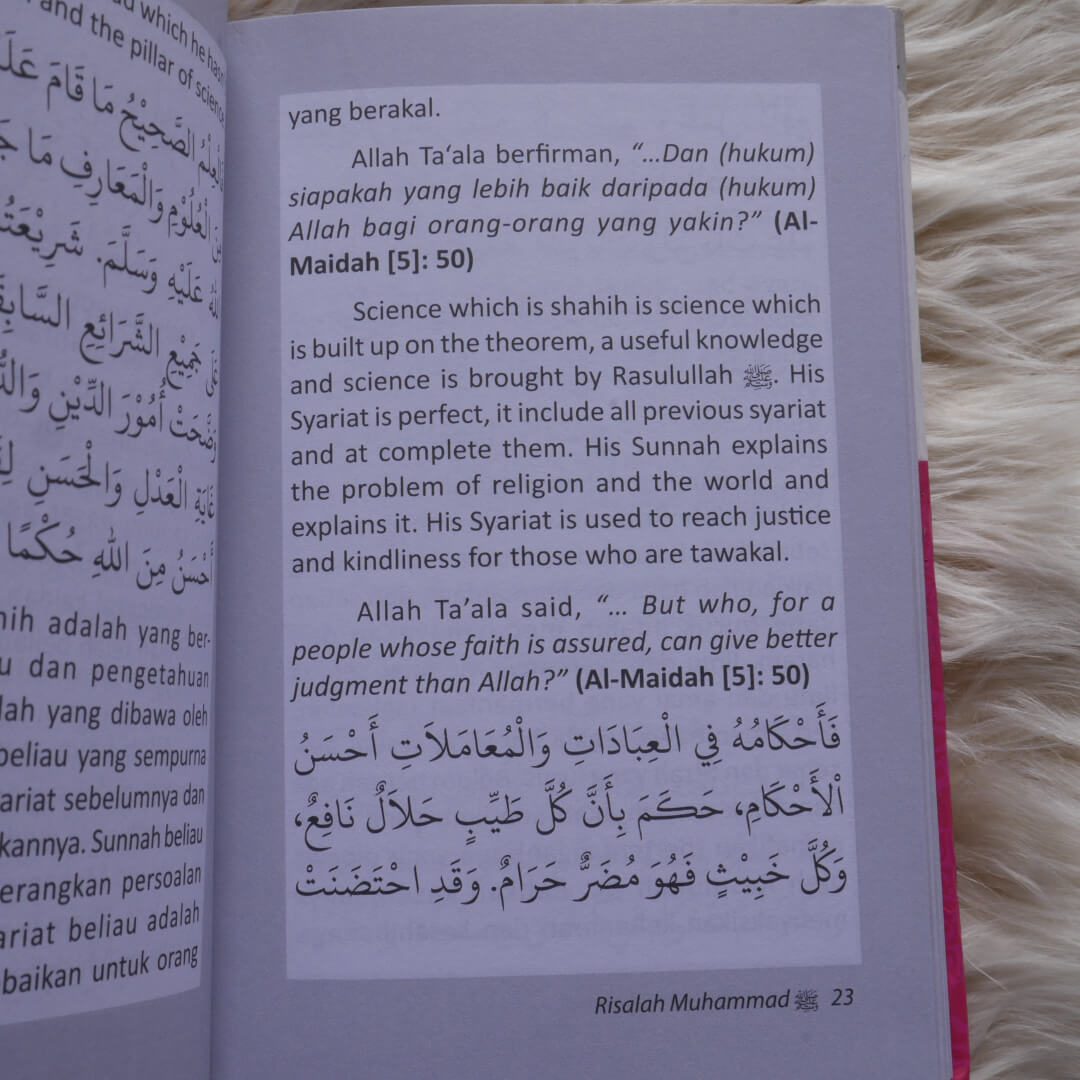 which he hasn't
and the pillar of science
الصَّحِيْحُ مَا قَامَ
الْعُلُوْمِ وَالْمَعَارِفِ مَا
عَلَيْهِ وَسَلَّمَ. شَرِيْعَتُهُ
جَمِيْعِ الشَّرَائِعِ
وَضَّحَتْ أُمُوْرَ الدِّيْنِ
غَايَةِ الْعَدْلِ وَالْحَسَنِ
أَحْسَنُ مِنَ اللهِ حُكْمًا
adalah yang ber-
dan pengetahuan
yang dibawa oleh
beliau yang sempurna
sebelumnya dan
Sunnah beliau
persoalan
beliau adalah
untuk orang
yang berakal.
Allah Ta‘ala berfirman, “...Dan (hukum)
siapakah yang lebih baik daripada (hukum)
Allah bagi orang-orang yang yakin?” (Al-
Maidah [5]: 50)
Science which is shahih is science which
is built up on the theorem, a useful knowledge
and science is brought by Rasulullah ﷺ. His
Syariat is perfect, it include all previous syariat
and at complete them. His Sunnah explains
the problem of religion and the world and
explains it. His Syariat is used to reach justice
and kindliness for those who are tawakal.
Allah Ta’ala said, “... But who, for a
people whose faith is assured, can give better
judgment than Allah?” (Al-Maidah [5]: 50)
فَأَحْكَامُهُ فِي الْعِبَادَاتِ وَالْمُعَامَلَاتِ أَحْسَنُ
الْأَحْكَامِ، حَكَمَ بِأَنَّ كُلَّ طَيِّبٍ حَلَالٌ نَافِعٌ،
وَكُلَّ خَبِيْثٍ فَهُوَ مُضَرٌّ حَرَامٌ. وَقَدِ احْتَضَنَتْ
Risalah Muhammad ﷺ 23